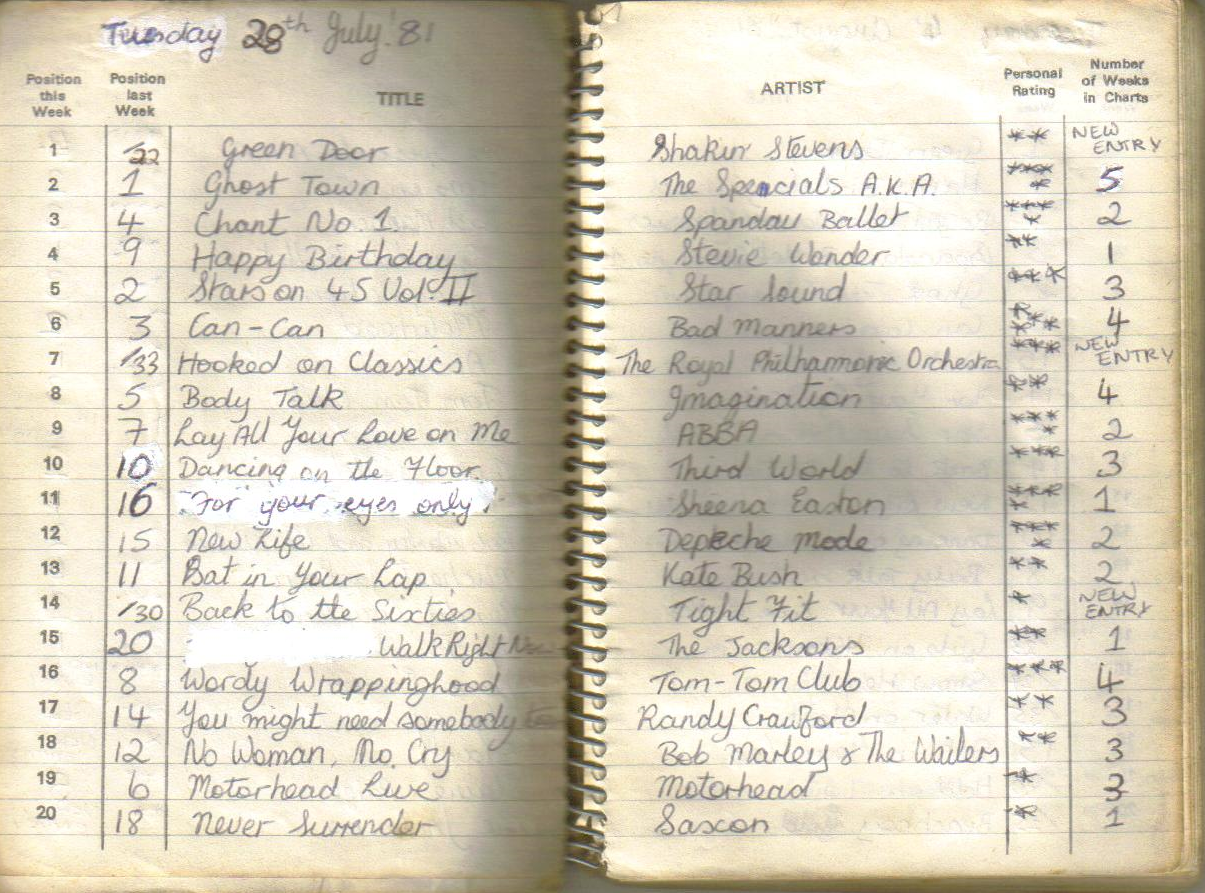 Tuesday 28th July '81
Position this Week Position last Week TITLE ARTIST Personal Rating Number of Weeks in Charts
1 /22 Green Door Shakin' Stevens ** NEW ENTRY
2 1 Ghost Town The Specials A.K.A. **** 5
3 4 Chant No. 1 Spandau Ballet **** 2
4 9 Happy Birthday Stevie Wonder ** 1
5 2 Stars on 45 Vol. II Star Sound *** 3
6 3 Can-Can Bad Manners **** 4
7 /33 Hooked on Classics The Royal Philharmonic Orchestra *** NEW ENTRY
8 5 Body Talk Imagination ** 4
9 7 Lay All Your Love on Me ABBA **** 2
10 10 Dancing on the Floor Third World *** 3
11 16 For your eyes only Sheena Easton **** 1
12 15 New Life Depeche Mode **** 2
13 11 Bat in Your Lap Kate Bush ** 2
14 /30 Back to the Sixties Tight Fit * NEW ENTRY
15 20 Walk Right Now The Jacksons ** 1
16 8 Wordy Wrappinghood Tom-Tom Club *** 4
17 14 You might need somebody to Randy Crawford ** 3
18 12 No Woman, No Cry Bob Marley & The Wailers ** 3
19 6 Motorhead Live Motorhead * 3
20 18 Never Surrender Saxon * 1